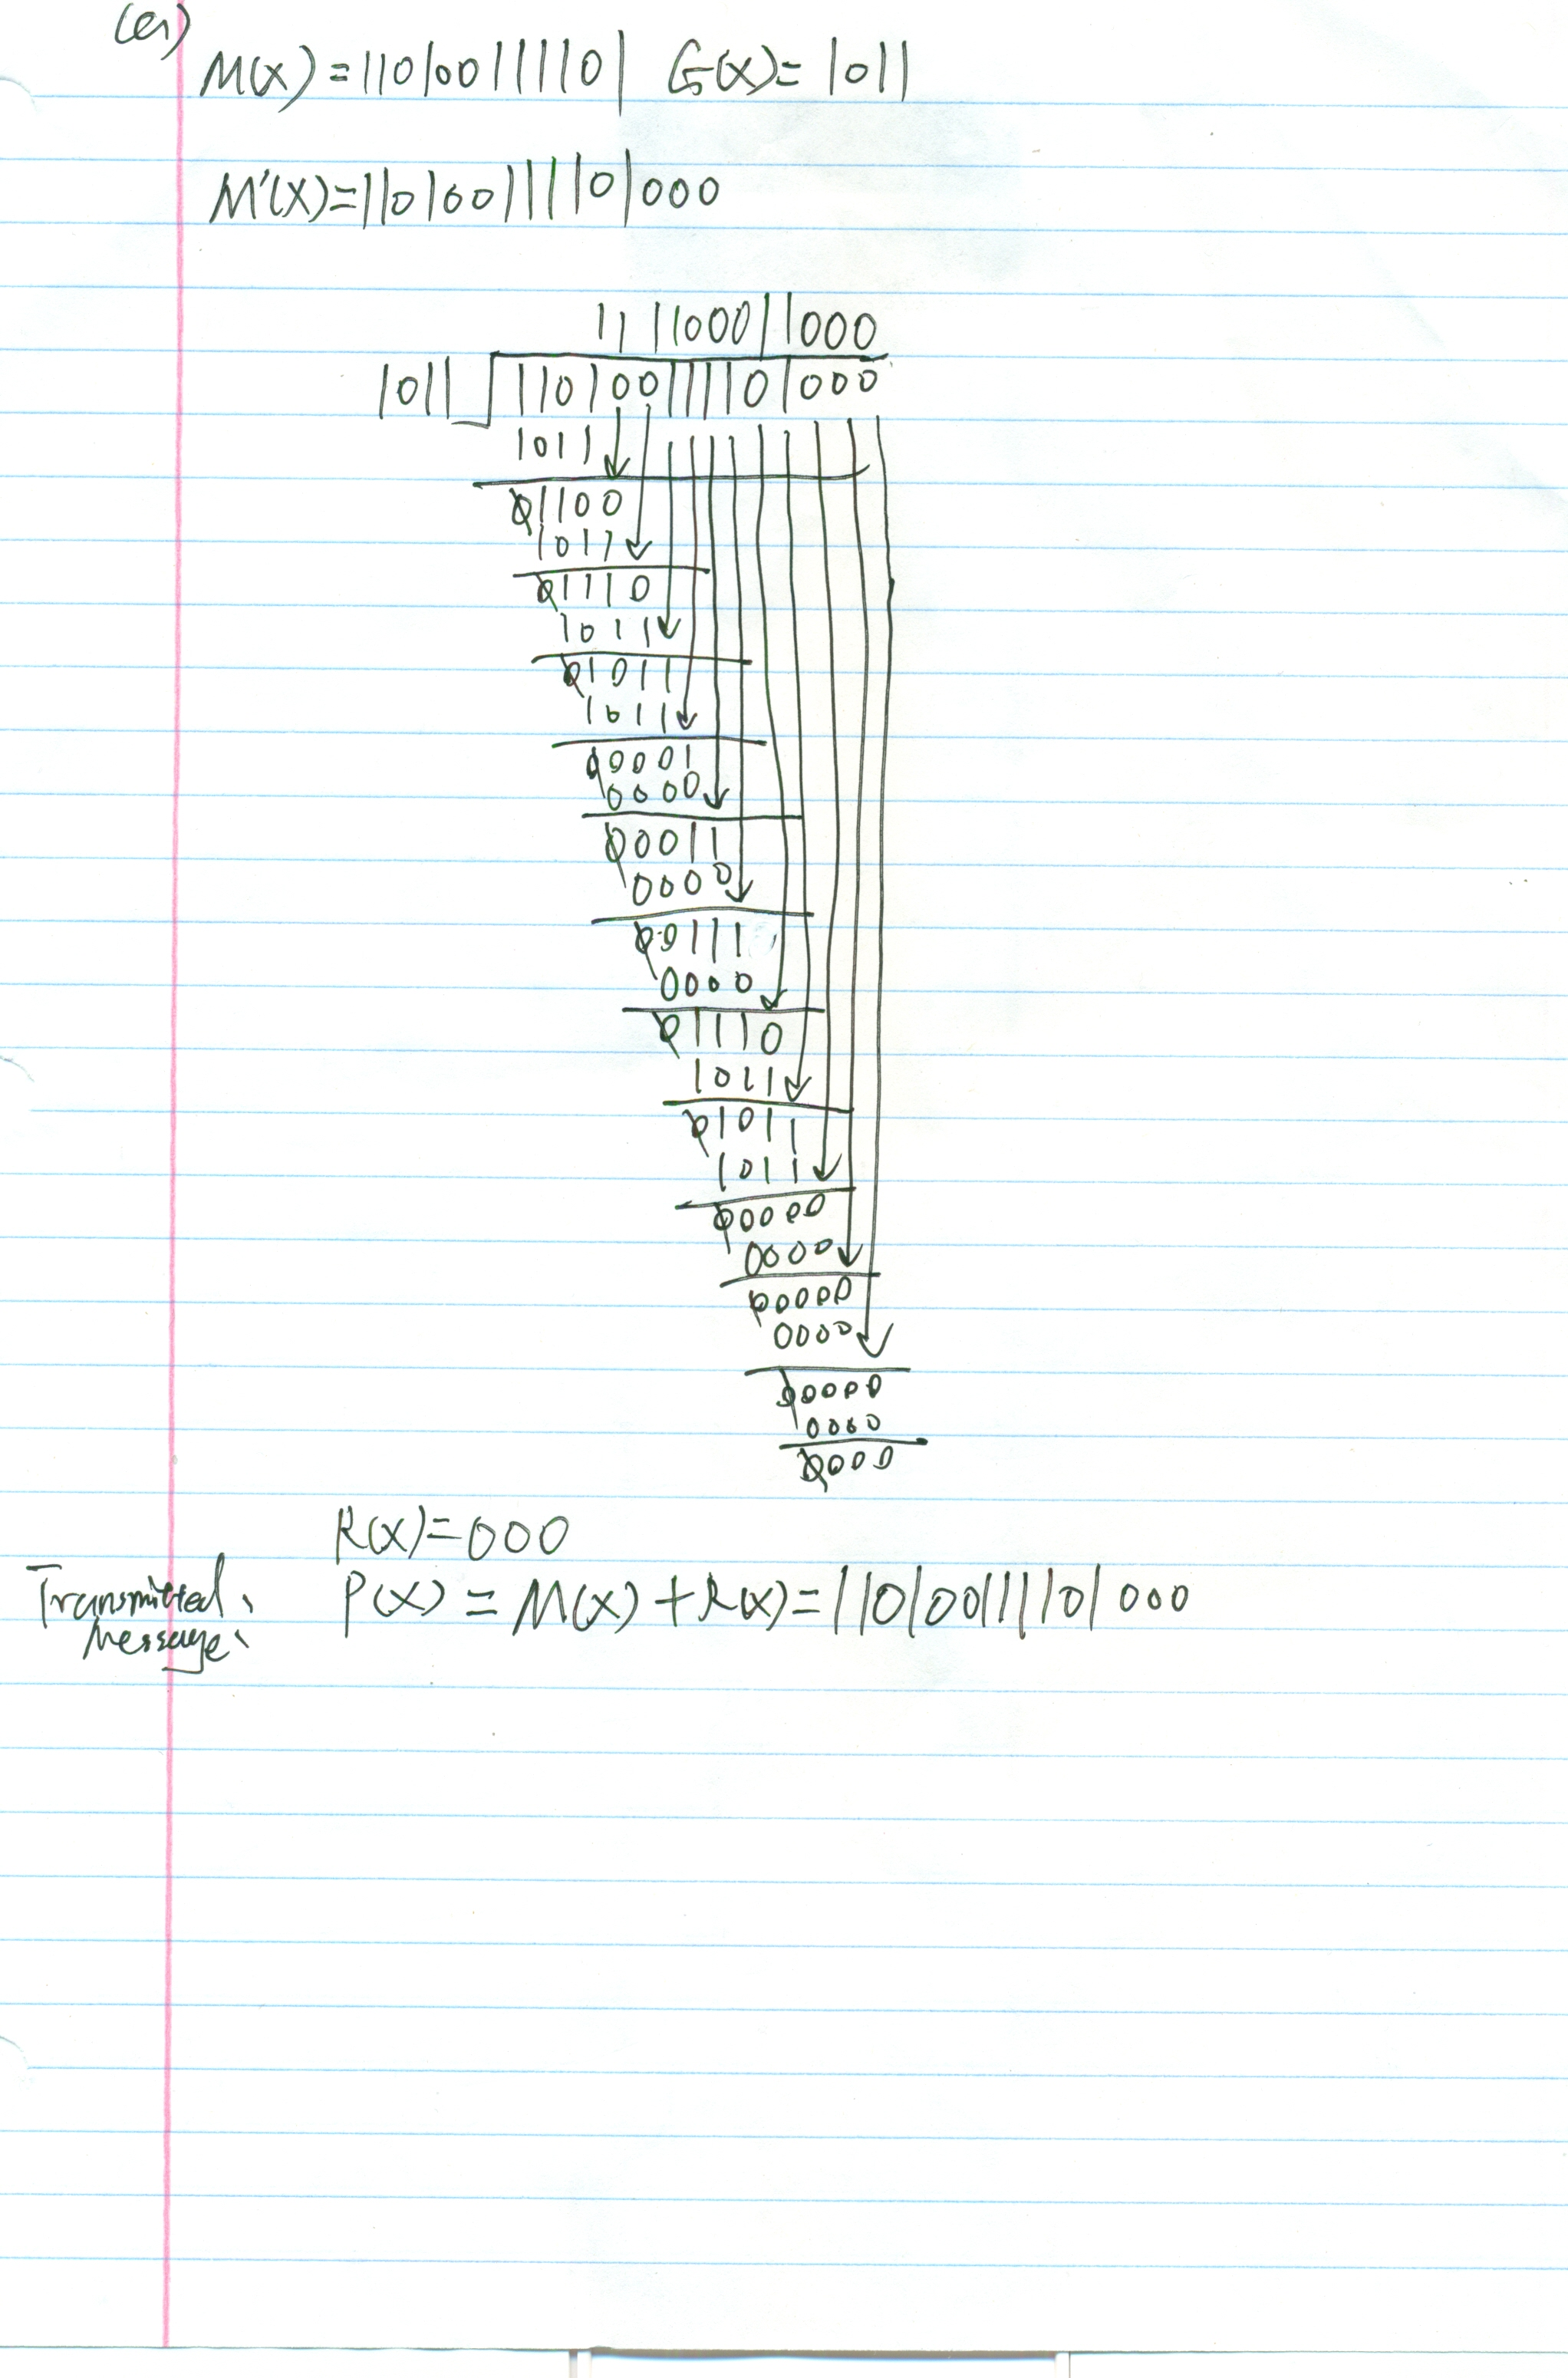 (a)
M(x)=110100111101 G(x)=1011
M'(x)=110100111101000
111100011000
1011 110100111101000
1011
01100
1011
01110
1011
01011
1011
00001
0000
00011
0000
00111
0000
01110
1011
01011
1011
00000
0000
00000
0000
00000
0000
0000
R(x)=000
Transmitted Message: P(x) = M(x)+R(x)=110100111101000